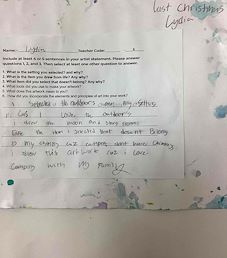 last christmas
Lydia
Name: Lydia Teacher Code:
Include at least 4 or 5 sentences in your artist statement. Please answer
questions 1, 2, and 3. Then select at least one other question to answer.
1. What is the setting you selected? and why?
2. What is the item you drew from life? Why any?
3. What item did you select that doesn't belong? Any why?
4. What tools did you use to make your artwork?
5. What does the artwork mean to you?
6. How did you incorporate the elements and principles of art into your work?
I selected the outdoors my setting
cus I love the outdoors
I drew the moon and stars
the item I selected that doesnt Belong
is my stocking cuz campers dont have
I enjoy this artwork cuz i love
Camping with My family